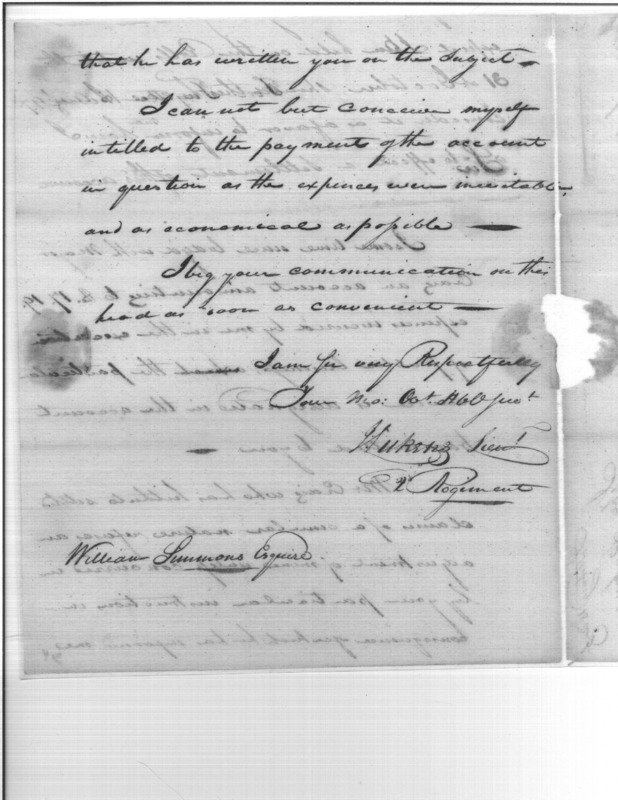 that he has written you on the subject —
I can not but conceive myself
intitled to the payment of the account
in question as the expences were inevitable,
and as economical as possible —
I beg your communication on this
head as soon as convenient —
I am Sir very Respectfully
Your Mo: Obt. Hbl Servt.
Lieut
2d Regiment
William Simmons Esquire